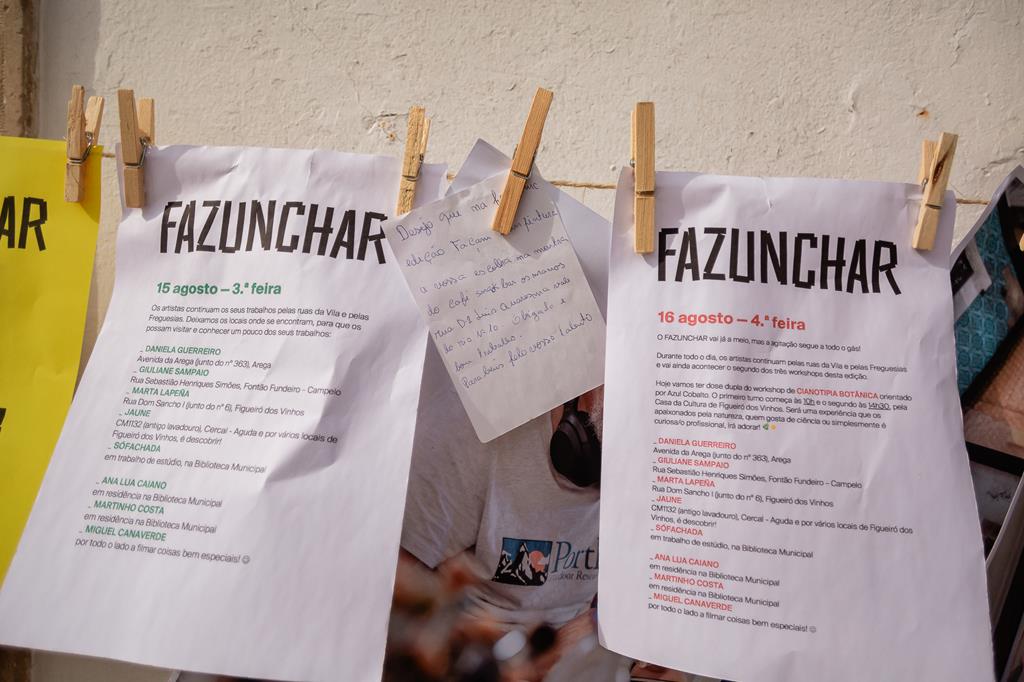 AR
FAZUNCHAR
15 agosto – 3.ª feira
Os artistas continuam os seus trabalhos pelas ruas da Vila e pelas
Freguesias. Deixamos os locais onde se encontram, para que os
possam visitar e conhecer um pouco dos seus trabalhos:
_ DANIELA GUERREIRO
Avenida da Arega (junto do nº 363), Arega
_ GIULIANE SAMPAIO
Rua Sebastião Henriques Simões, Fontão Fundeiro – Campelo
_ MARTA LAPEÑA
Rua Dom Sancho I (junto do nº 6), Figueiró dos Vinhos
_ JAUNE
CM1132 (antigo lavadouro), Cercal - Aguda e por vários locais de
Figueiró dos Vinhos, é descobrir!
_ SÔFACHADA
em trabalho de estúdio, na Biblioteca Municipal
_ ANA LUA CAIANO
em residência na Biblioteca Municipal
_ MARTINHO COSTA
em residência na Biblioteca Municipal
_ MIGUEL CANAVERDE
por todo o lado a filmar coisas bem especiais! ☺
Desejo que na
edição Façam pintura
a vossa escolha na montra
do café
rua
Obrigado e
bom trabalho.
vosso talento
Port
door Res
FAZUNCHAR
16 agosto – 4.ª feira
O FAZUNCHAR vai já a meio, mas a agitação segue a todo o gás!
Durante todo o dia, os artistas continuam pelas ruas da Vila e pelas Freguesias
e vai ainda acontecer o segundo dos três workshops desta edição.
Hoje vamos ter dose dupla do workshop de CIANOTIPIA BOTÂNICA orientado
por Azul Cobalto. O primeiro turno começa às 10h e o segundo às 14h30, pela
Casa da Cultura de Figueiró dos Vinhos. Será uma experiência que os
apaixonados pela natureza, quem gosta de ciência ou simplesmente é
curiosa/o profissional, irá adorar!
_ DANIELA GUERREIRO
Avenida da Arega (junto do nº 363), Arega
_ GIULIANE SAMPAIO
Rua Sebastião Henriques Simões, Fontão Fundeiro – Campelo
_ MARTA LAPEÑA
Rua Dom Sancho I (junto do nº 6), Figueiró dos Vinhos
_ JAUNE
CM1132 (antigo lavadouro), Cercal - Aguda e por vários locais de Figueiró dos
Vinhos, é descobrir!
_ SÔFACHADA
em trabalho de estúdio, na Biblioteca Municipal
_ ANA LUA CAIANO
em residência na Biblioteca Municipal
_ MARTINHO COSTA
em residência na Biblioteca Municipal
_ MIGUEL CANAVERDE
por todo o lado a filmar coisas bem especiais! ☺